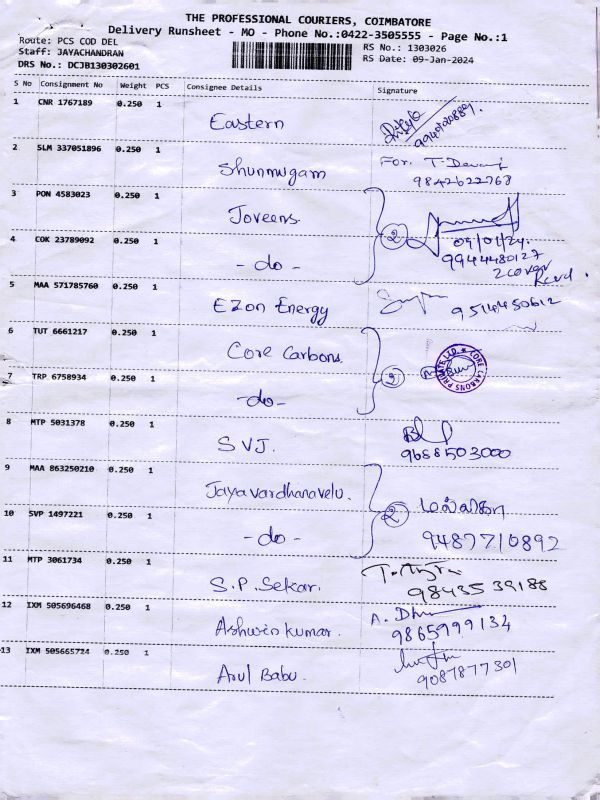 THE PROFESSIONAL COURIERS, COIMBATORE
Delivery Runsheet - MO - Phone No.:0422-3505555 - Page No.:1
Route: PCS COD DEL
RS No.: 1303026
Staff: JAYACHANDRAN
RS Date: 09-Jan-2024
DRS No.: DCJB130302601
S No Consignment No Weight PCS Consignee Details Signature
1 CNR 1767189 0.250 1
Eastern
2 SLM 337051896 0.250 1
Shunmugam For. T.
9842622768
3 PON 4583023 0.250 1
Joveens.
4 COK 23789092 0.250 1
- do - 2 09/01/24.
9944480127
5 MAA 571785760 0.250 1
EZon Energy 9514450612
6 TUT 6661217 0.250 1
Core Carbons.
CORE CARBONS PRIVATE LTD.
7 TRP 6758934 0.250 1
-do-
8 MTP 5031378 0.250 1
SVJ. 9688503000
9 MAA 863250210 0.250 1
Jayavardhanavelu. மல்லிகா
10 SVP 1497221 0.250 1
- do - 2 9487710892
11 MTP 3061734 0.250 1
S.P.Sekar. 9843539188
12 IXM 505696468 0.250 1
Ashwin kumar. 9865999134
13 IXM 505665724 0.250 1
Arul Babu. 9087877301